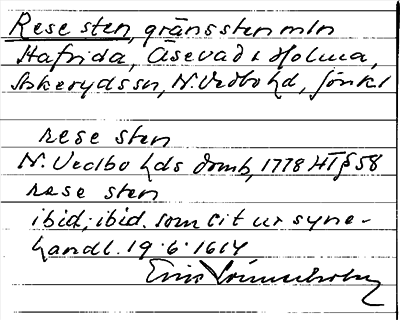 Rese sten, gränssten mln
Hafrida, Åsevad o Holma,
Askerydssn, N. Vedbo hd, Jönk l
rese sten
N. Vedbo hds domb, 1778 HT § 58
rese sten
ibid; ibid. som cit ur syne-
handl. 19.6.1664